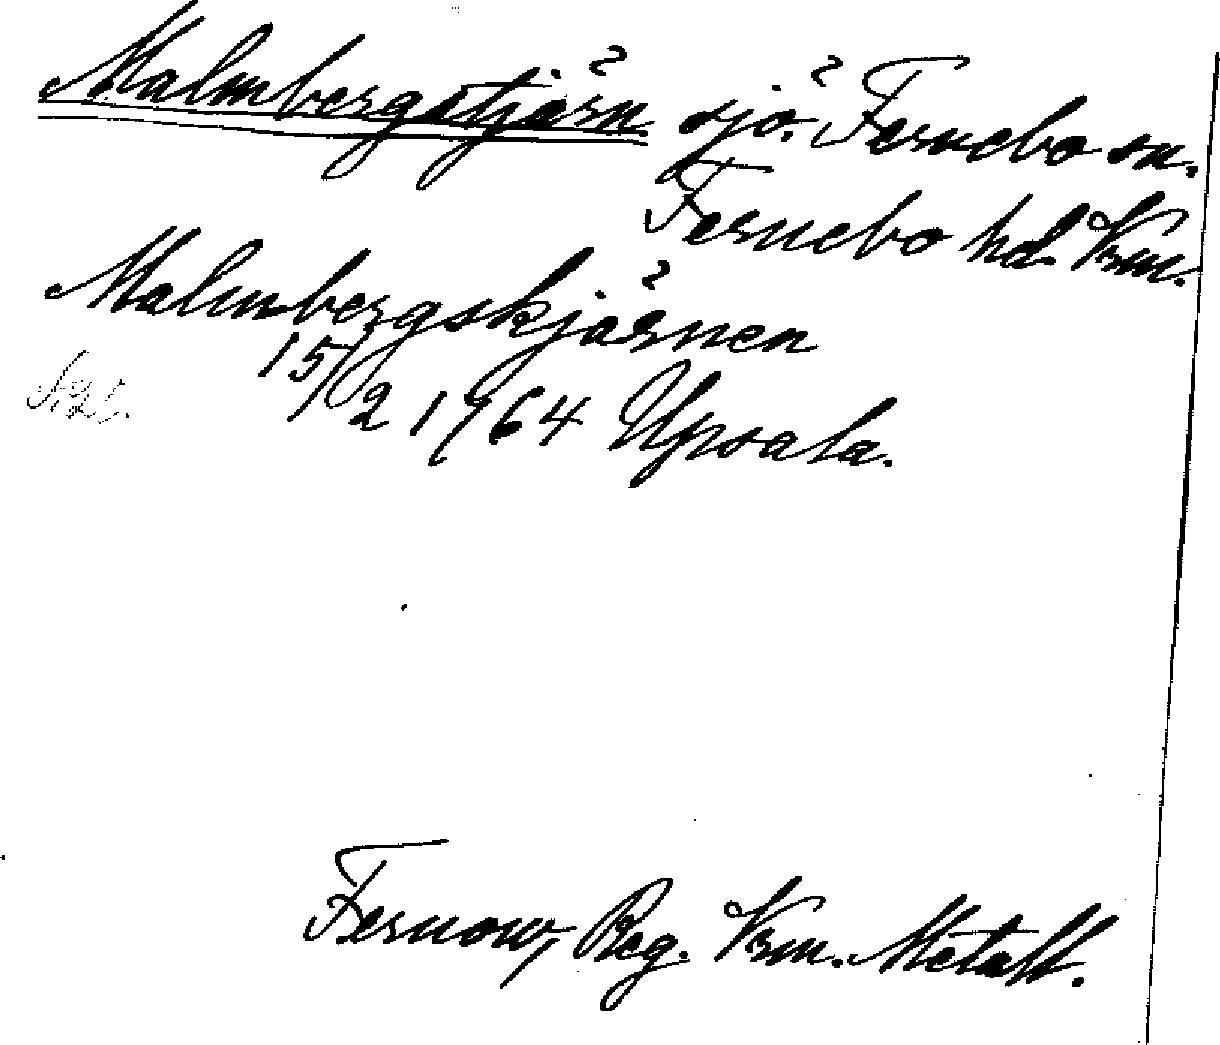 Malmbergstjärn sjö. Fernebo sn.
Fernebo hd. Vrm.
Malmbergskjärnen
15/2 1764 Upsala.
Fernow, Reg. Vrm. Metall.